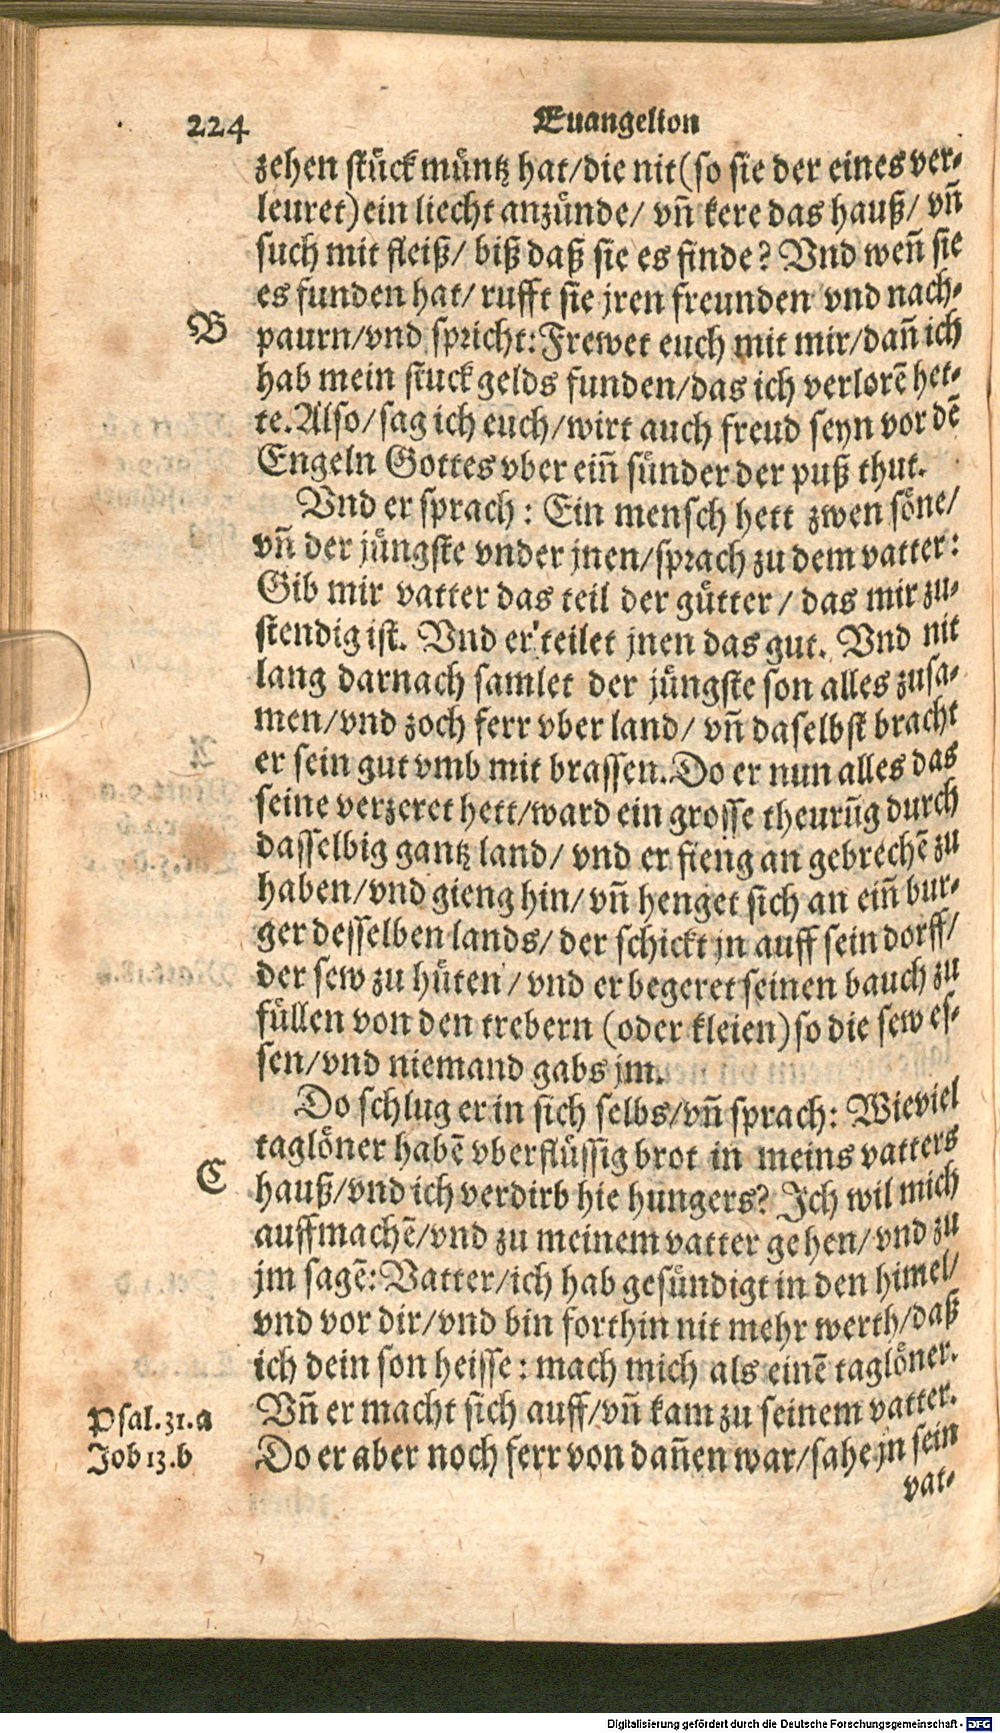 224 Euangelion
zehen stück müntz hat/die nit(so sie der eines ver-
leuret)ein liecht anzünde/ vñ kere das hauß/ vñ
such mit fleiß/ biß daß sie es finde? Vnd weñ sie
es funden hat/ rufft sie jren freunden vnd nach-
B paurn/vnd spricht: Frewet euch mit mir/dañ ich
hab mein stuck gelds funden/das ich verlorẽ het-
te. Also/sag ich euch/wirt auch freud seyn vor dẽ
Engeln Gottes vber eiñ sünder der puß thut.
Vnd er sprach: Ein mensch hett zwen söne/
vñ der jüngste vnder jnen/sprach zu dem vatter:
Gib mir vatter das teil der gütter/ das mir zu-
stendig ist. Vnd er teilet jnen das gut. Vnd nit
lang darnach samlet der jüngste son alles zusa-
men/vnd zoch ferr vber land/ vñ daselbst bracht
er sein gut vmb mit brassen. Do er nun alles das
seine verzeret hett/ward ein grosse theurũg durch
dasselbig gantz land/ vnd er fieng an gebrechẽ zu
haben/vnd gieng hin/ vñ henget sich an eiñ bur-
ger desselben lands/ der schickt jn auff sein dorff/
der sew zu hüten/ vnd er begeret seinen bauch zu
füllen von den trebern (oder kleien)so die sew es-
sen/vnd niemand gabs jm.
Do schlug er in sich selbs/vñ sprach: Wieviel
taglöner habẽ vberflüssig brot in meins vatters
C hauß/vnd ich verdirb hie hungers? Ich wil mich
auffmachẽ/vnd zu meinem vatter gehen/vnd zu
jm sagẽ: Vatter/ich hab gesündigt in den himel/
vnd vor dir/vnd bin forthin nit mehr werth/daß
ich dein son heisse: mach mich als einẽ taglöner.
Psal.31.a Vñ er macht sich auff/vñ kam zu seinem vatter.
Job 13.b Do er aber noch ferr von dañen war/sahe jn sein
vat-
Digitalisierung gefördert durch die Deutsche Forschungsgemeinschaft - DFG